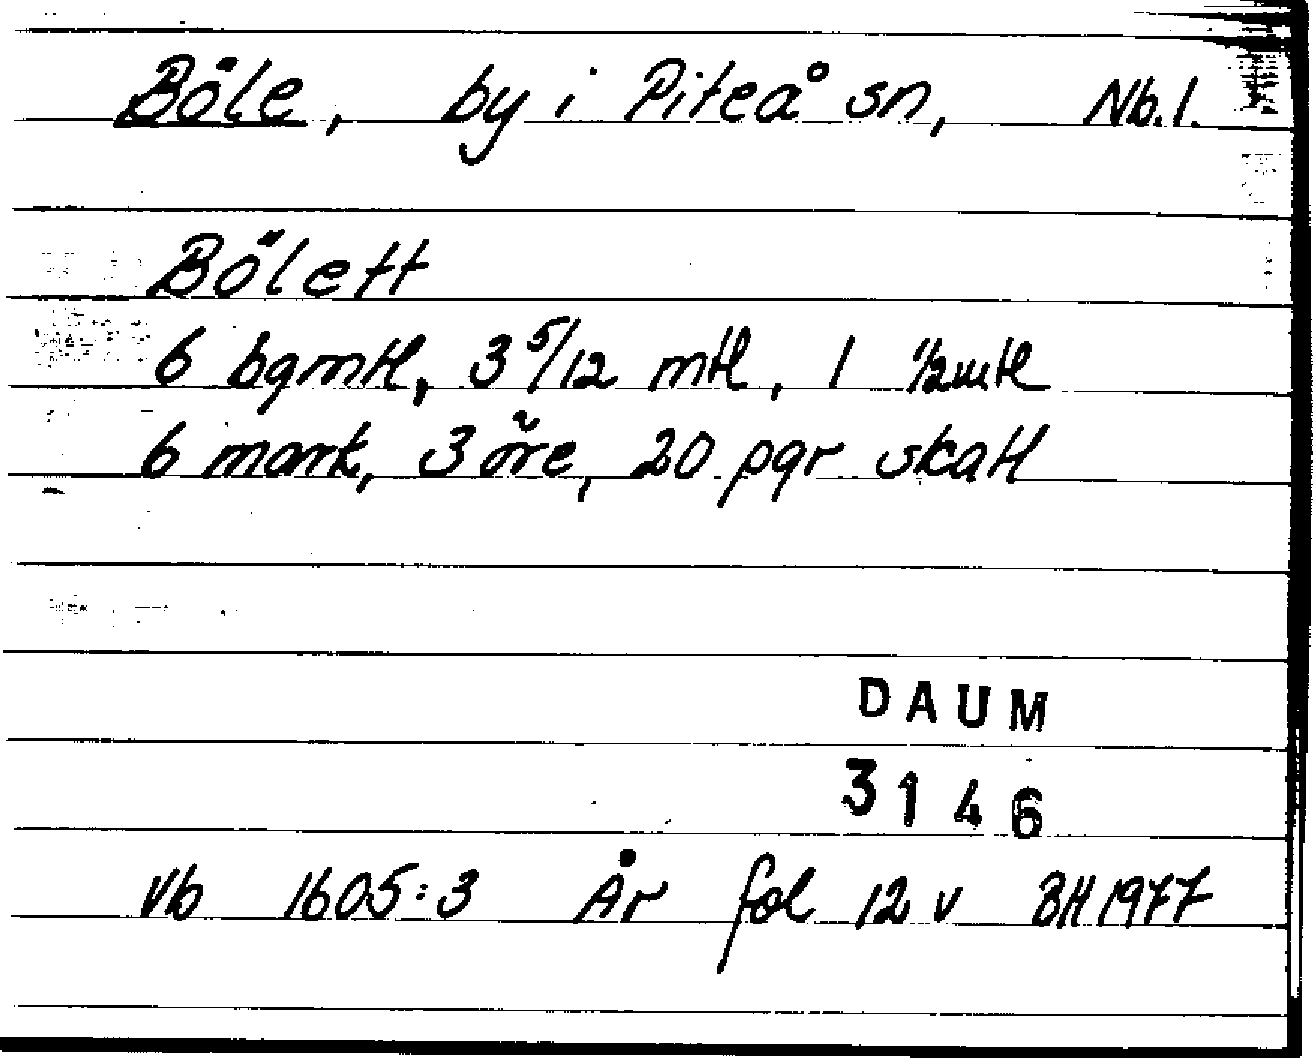 Böle, by i Piteå sn, Nb.l.
Bölett
6 bgmtl, 3 5/12 mtl, 1 1/2mtl
6 mark, 3 öre, 20 pgr skatt
DAUM
3146
Vb 1605:3 År fol 12 v BH 1977